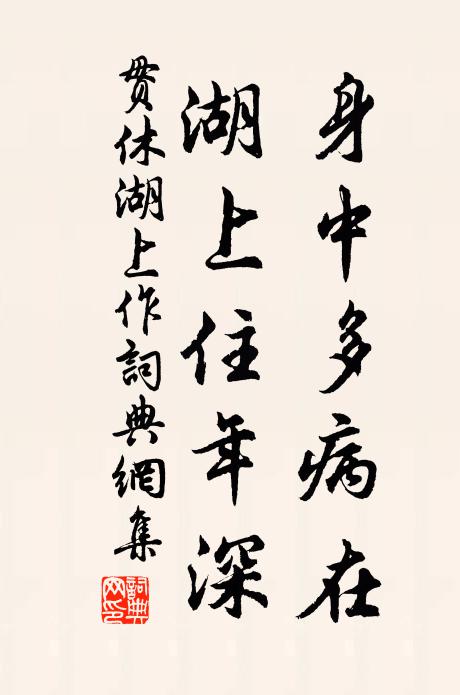 身中多病在
湖上住年深
贯休湖上作詞典網集
詞典网印